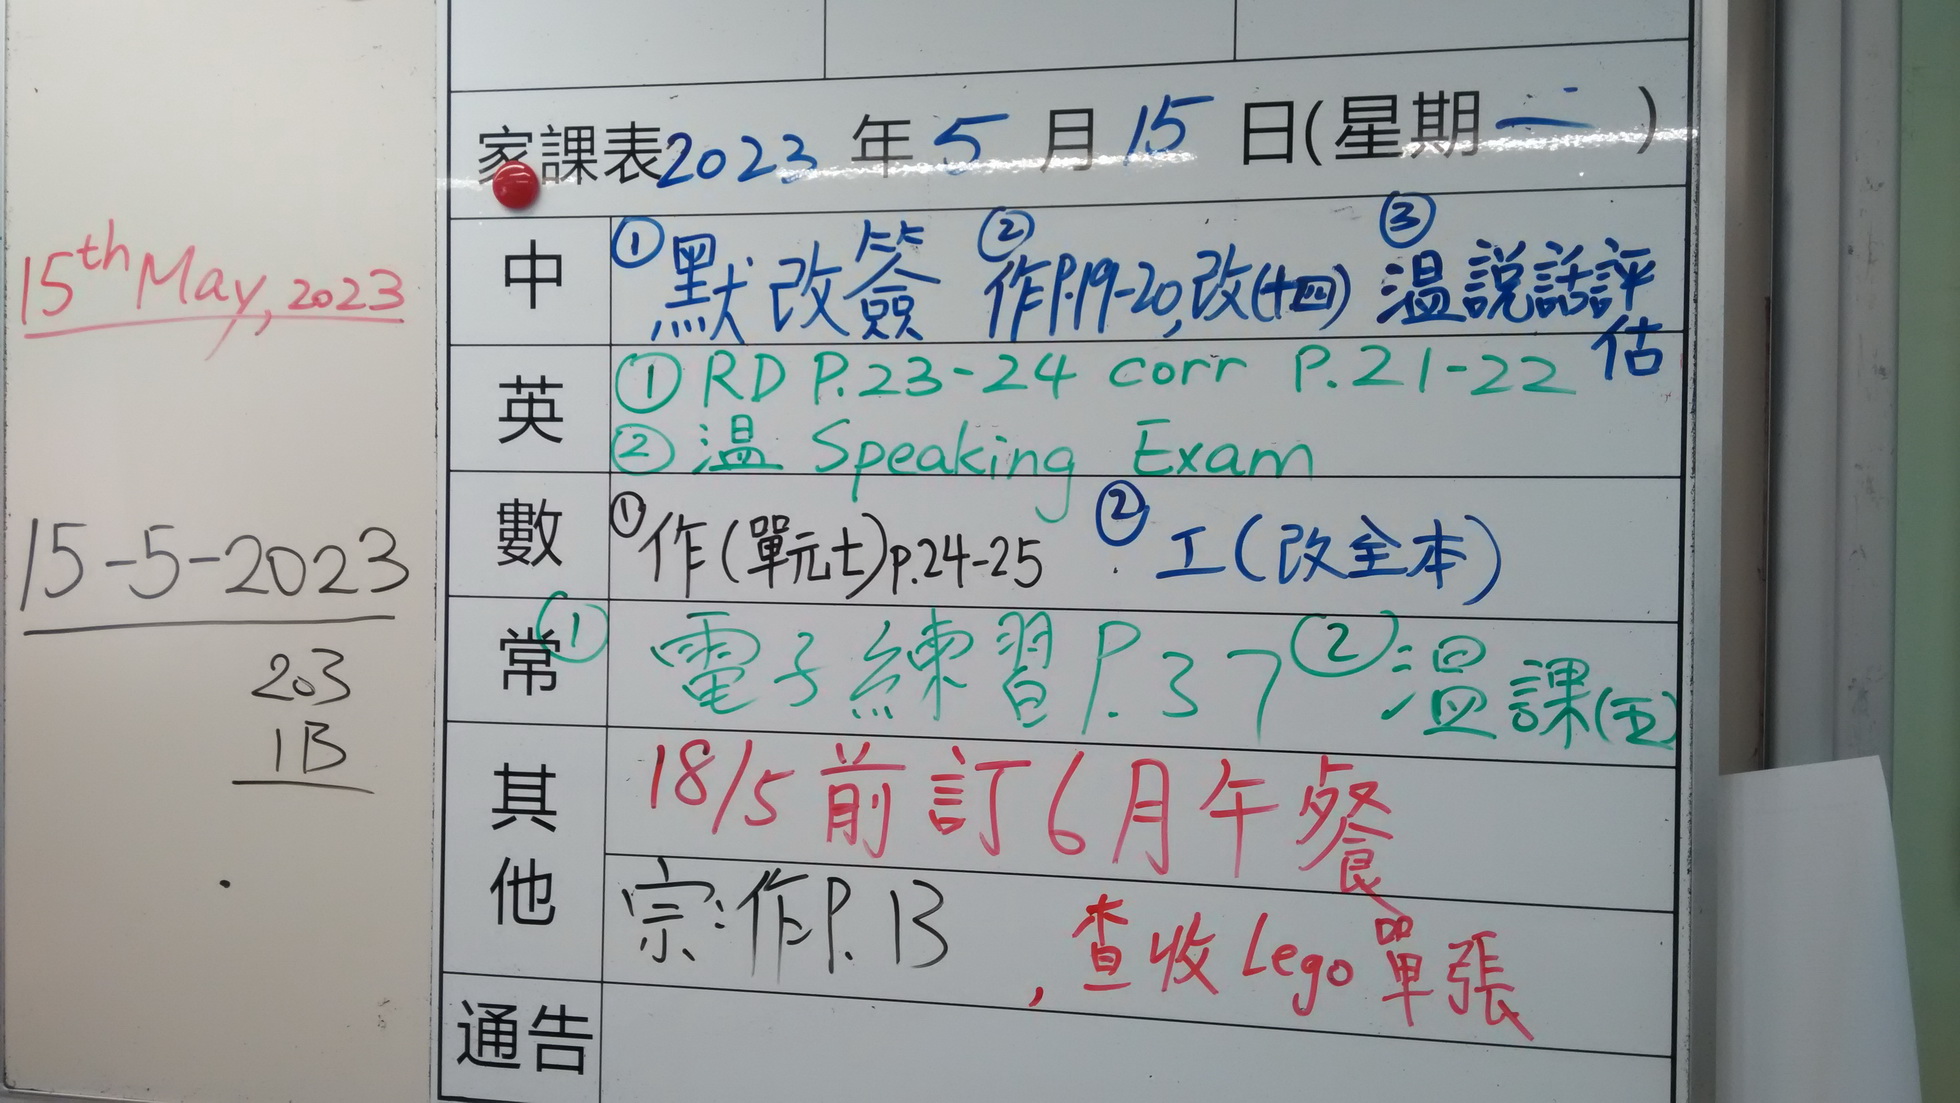 15th May, 2023
15-5-2023
203
1B
家課表2023年5月15日(星期一)
中 ①默改簽 ②作P.19-20,改(十四) ③温説話評估
英 ①RD P.23-24 corr P.21-22
②温 Speaking Exam
數 ①作(單元七)p.24-25 ②工(改全本)
常 ①電子練習P.37 ②温課(五)
其他 18/5前訂6月午餐
宗:作P.13 , 查收Lego單張
通告